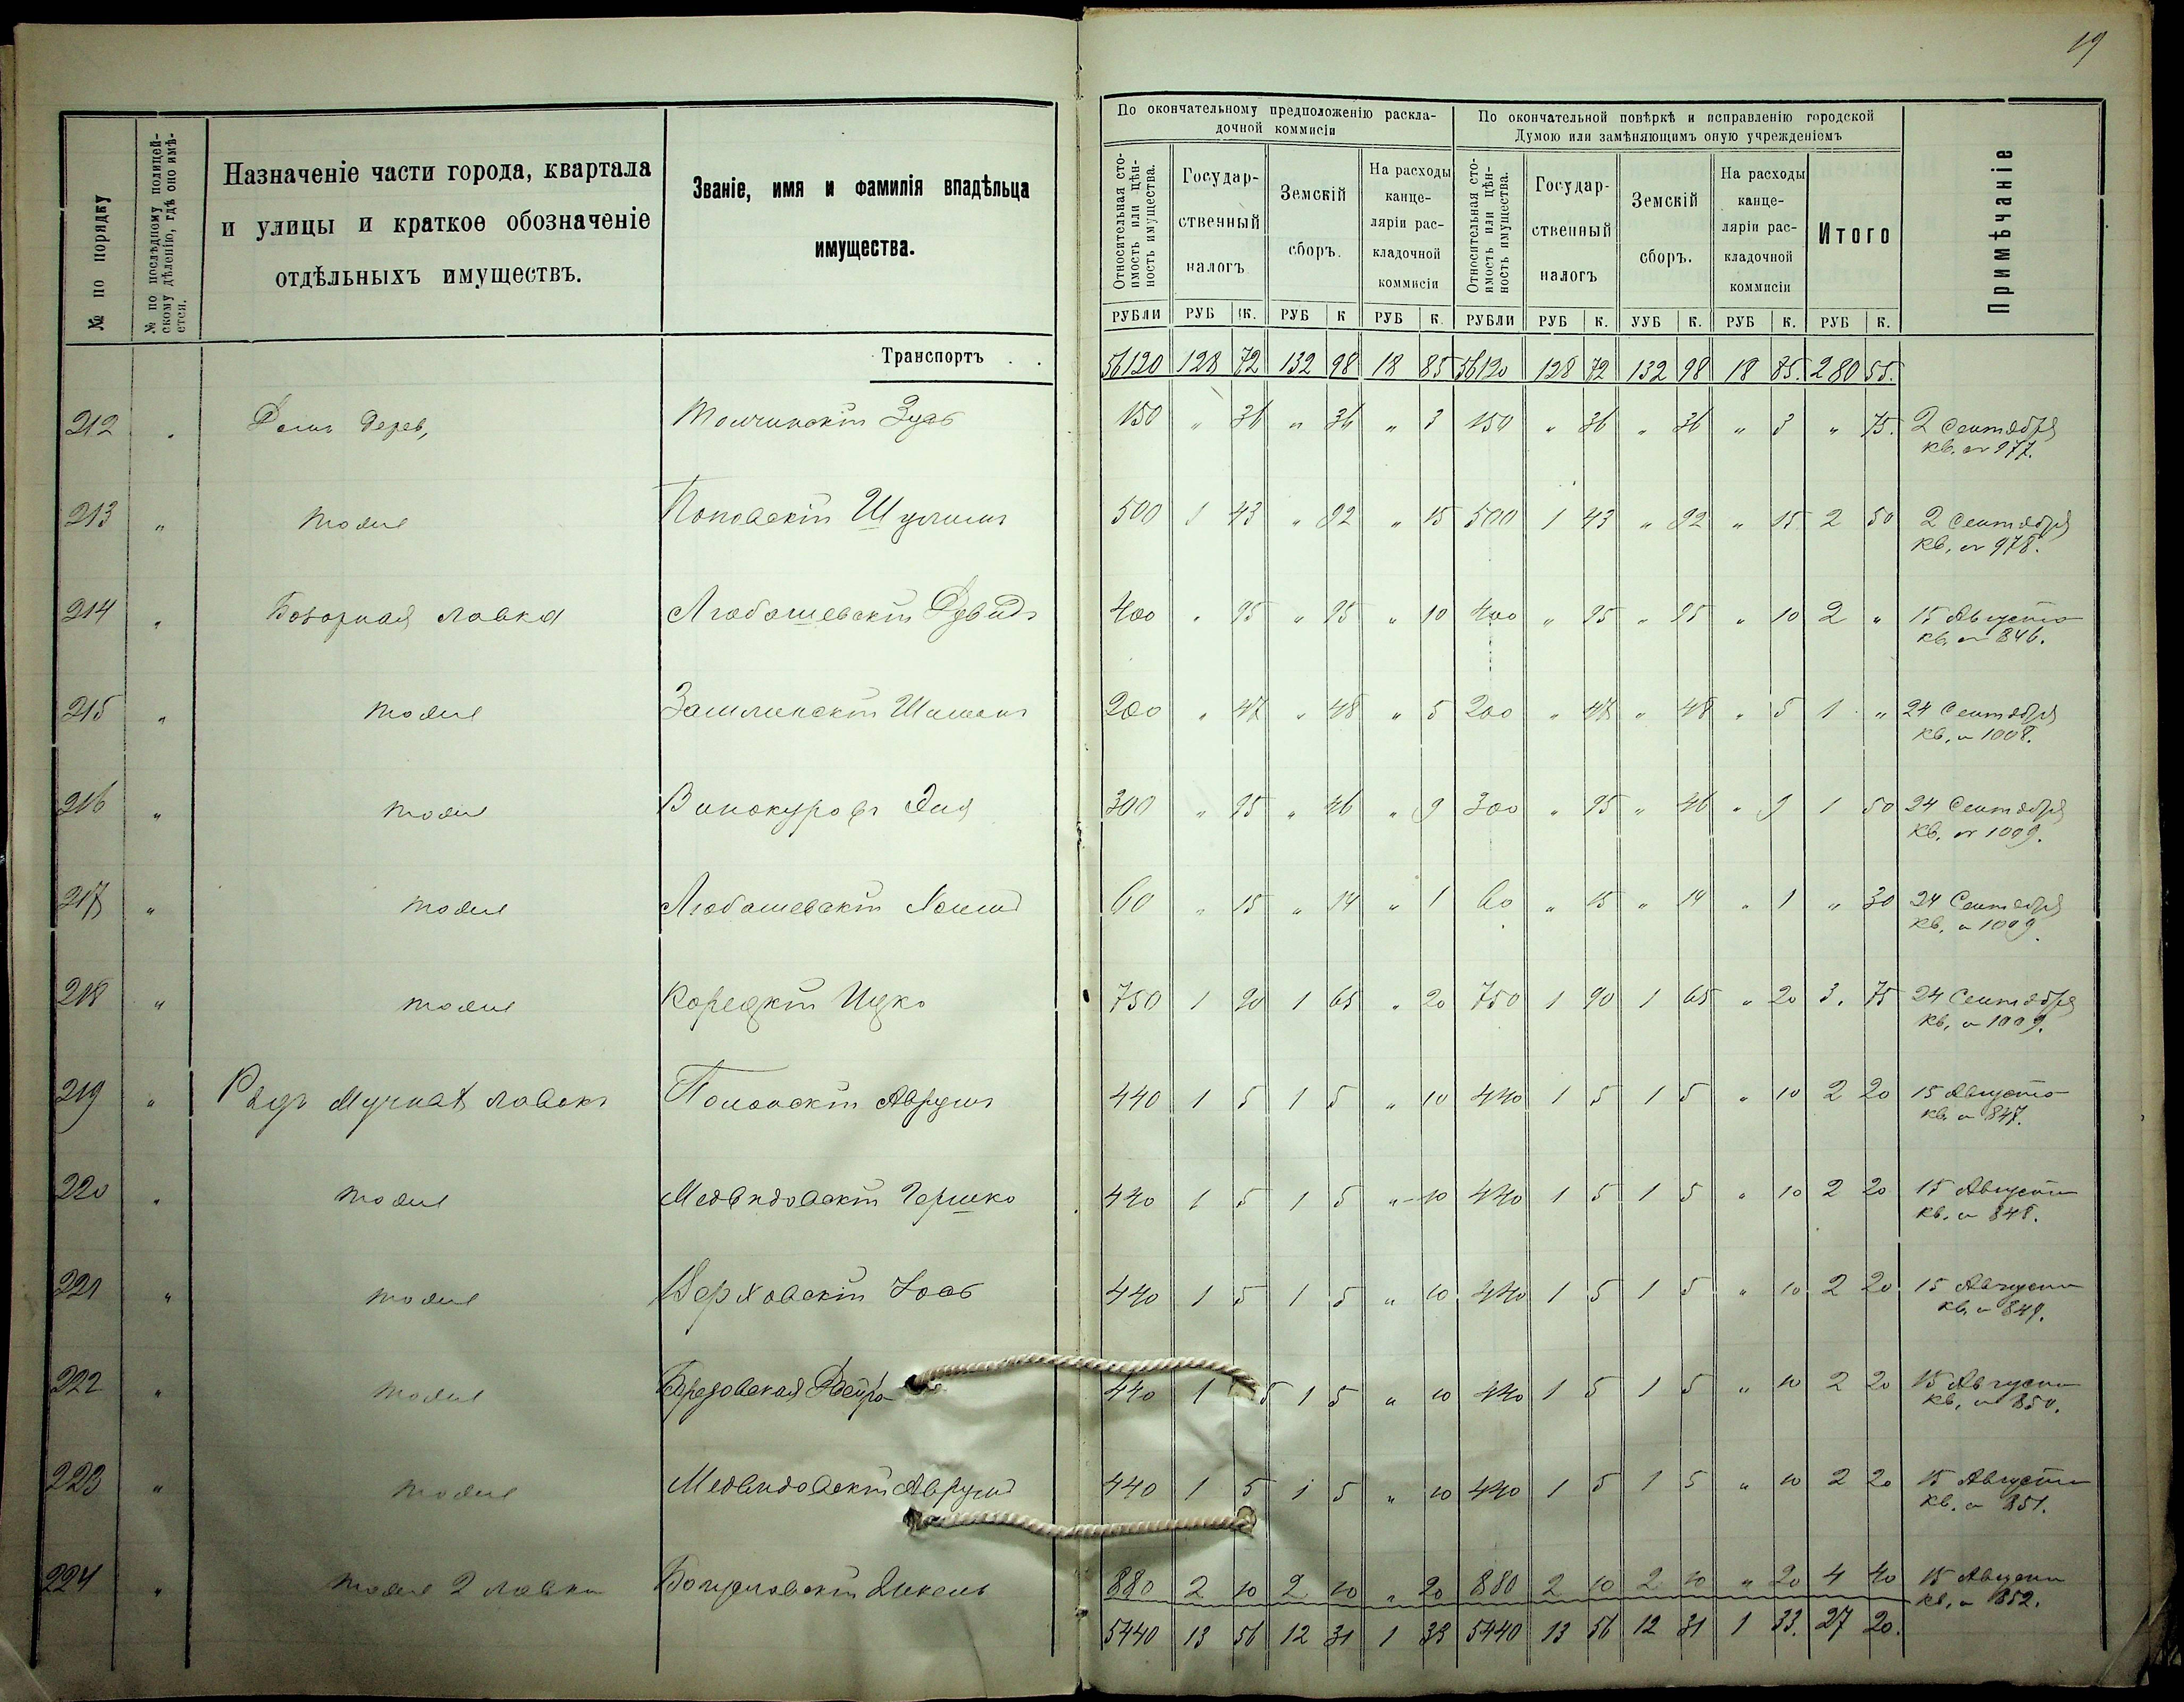 19
№ по порядку
№ по послѣдному полицей-
скому дѣленію, гдѣ оно имѣ-
ется.
Назначеніе части города, квартала
и улицы и краткое обозначеніе
отдѣльныхъ имуществъ.
Званіе, имя и фамилія впадѣльца
имущества.
По окончательному предположенію раскла-
дочной коммисіи
По окончательной повѣркѣ и исправленію городской
Думою или замѣняющимъ оную учрежденіемъ
Относительная сто-
имость или цѣн-
ность имущества.
Государ-
ственный
налогъ
Земскій
сборъ.
На расходы
канце-
ляріи рас-
кладочной
коммисіи
Относительная сто-
имость или цѣн-
ность имущества.
Государ-
ственный
налогъ
Земскій
сборъ.
На расходы
канце-
ляріи рас-
кладочной
коммисіи
Итого
Примѣчаніе
РУБЛИ РУБ К. РУБ К РУБ К. РУБЛИ РУБ К. УУБ К. РУБ К. РУБ К.
Транспортъ . . 56120 128 72 132 98 18 85 56120 128 72 132 98 18 85. 280 55.
212 " Домъ дерев, 150 " 36 " 36 " 3 150 " 36 " 36 " 3 " 75. 2 Сентября
кв. № 977.
213 " тоже Поповскій Шулимъ 500 1 43 " 92 " 15 500 1 43 " 92 " 15 2 50 2 Сентября
кв. № 978.
214 " Базарная лавка Любашевскій Дувидъ 400 " 95 " 95 " 10 400 " 95 " 95 " 10 2 " 15 Августа
кв. № 846.
215 " тоже 200 " 47 " 48 " 5 200 " 47 " 48 " 5 1 " 24 Сентября
кв. № 1008.
216 " тоже Винокуровъ 300 " 95 " 46 " 9 300 " 95 " 46 " 9 1 50 24 Сентября
кв. № 1009.
217 " тоже Любашевскій 60 " 15 " 14 " 1 60 " 15 " 14 " 1 " 30 24 Сентября
кв. № 1009.
218 " тоже Корецкій Ицко 750 1 90 1 65 " 20 750 1 90 1 65 " 20 3. 75 24 Сентября
кв. № 1009.
219 " Рядъ Мучныхъ лавокъ Аврумъ 440 1 5 1 5 " 10 440 1 5 1 5 " 10 2 20 15 Августа
кв. № 847.
220 " тоже Медвидовскій Гершко 440 1 5 1 5 " 10 440 1 5 1 5 " 10 2 20 15 Августа
кв. № 848.
221 " тоже Верховскій 440 1 5 1 5 " 10 440 1 5 1 5 " 10 2 20 15 Августа
кв. № 849.
222 " тоже 440 1 5 1 5 " 10 440 1 5 1 5 " 10 2 20 15 Августа
кв. № 850.
223 " тоже Медвидовскій Аврумъ 440 1 5 1 5 " 10 440 1 5 1 5 " 10 2 20 15 Августа
кв. № 851.
224 " тоже 2 лавки 880 2 10 2 10 " 20 880 2 10 2 10 " 20 4 40 15 Августа
кв. № 852.
5440 13 56 12 31 1 33 5440 13 56 12 31 1 33. 27 20.